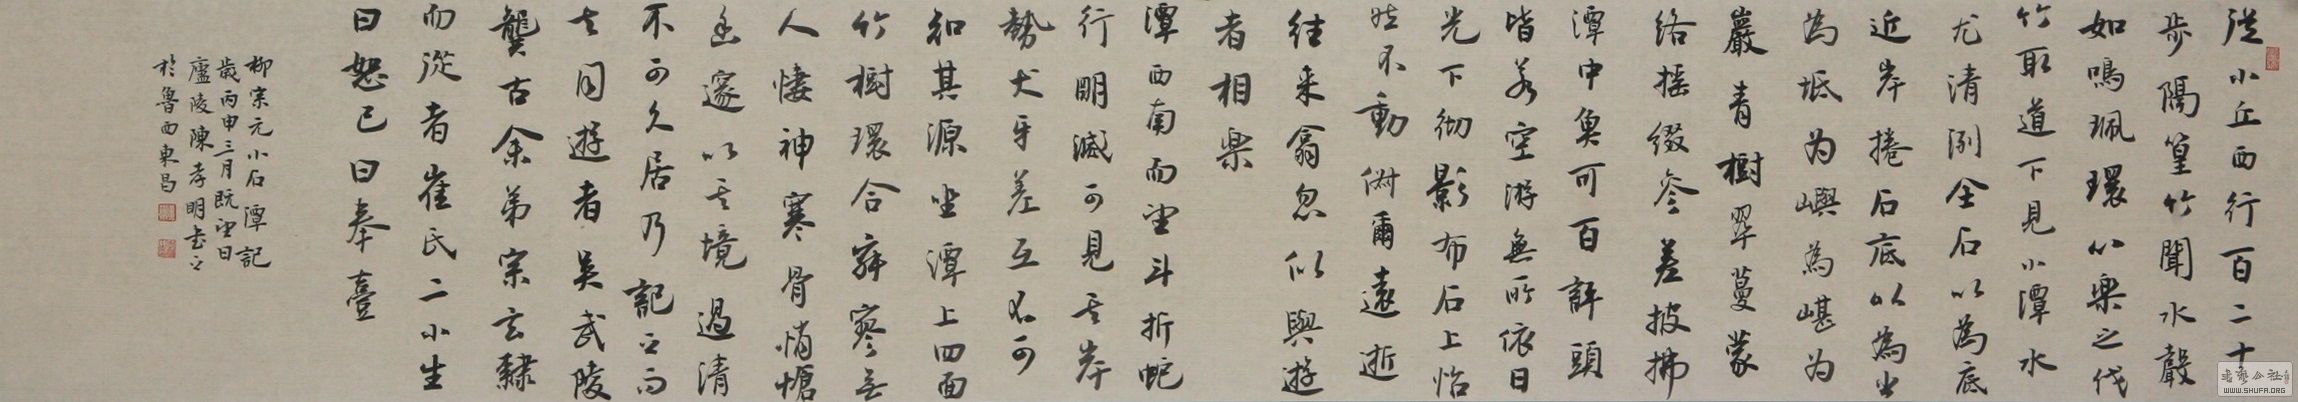 從小丘西行百二十
步隔篁竹聞水聲
如鳴珮環心樂之伐
竹取道下見小潭水
尤清冽全石以為底
近岸捲石底以為出
為坻为嶼為嵁为
巖青樹翠蔓蒙
絡搖綴參差披拂
潭中魚可百許頭
皆若空游無所依日
光下彻影布石上怡
然不動俶爾遠逝
往来翕忽似與遊
者相樂
潭西南而望斗折蛇
行明滅可見其岸
勢犬牙差互不可
知其源坐潭上四面
竹樹環合寂寥無
人悽神寒骨悄愴
幽邃以其境過清
不可久居乃記之而
去同遊者吴武陵
龔古余弟宗玄隸
而從者崔氏二小生
曰恕己曰奉壹
柳宗元小石潭記
歲丙申三月既望日
廬陵陳孝明書之
於魯西東昌
書藝公社
WWW.SHUFA.ORG